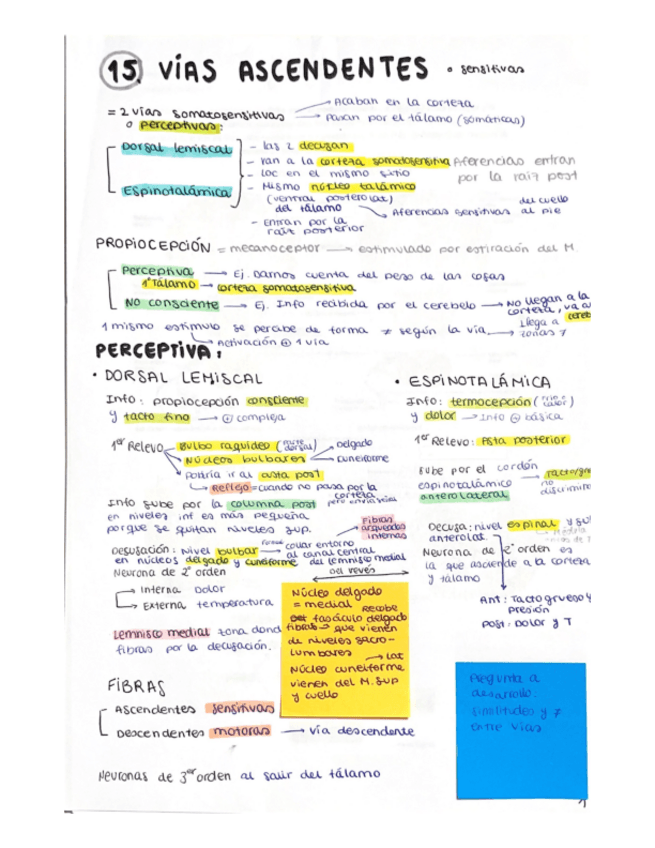 15. VÍAS ASCENDENTES • sensitivas
= 2 vías somatosensitivas → Acaban en la corteza
o perceptivas: → Pasan por el tálamo (somáticas)
Dorsal lemiscal
Espinotalámica
- las 2 decusan
- van a la corteza somatosensitiva
- Loc en el mismo sitio
- Mismo núcleo talámico
(ventral posterolat)
del tálamo
- Entran por la
raíz posterior
Aferencias entran
por la raíz post
→ Aferencias sensitivas del cuello
al pie
PROPIOCEPCIÓN = mecanoceptor → estimulado por estiración del M.
Perceptiva → Ej. Darnos cuenta del peso de las cosas
1º Tálamo → corteza somatosensitiva
No consciente → Ej. Info recibida por el cerebelo → No llegan a la
corteza, va a
cereb
1 mismo estímulo se percibe de forma ≠ según la vía → Llega a
zonas ≠
→ Activación ⊕ 1 vía
PERCEPTIVA:
• DORSAL LEMISCAL
Info: propiocepción consciente
y tacto fino → ⊕ compleja
1er Relevo → Bulbo raquídeo
→ Núcleos bulbares → Delgado
→ Cuneiforme
→ Podría ir al asta post
→ Reflejo = cuando no pasa por la
corteza
Info sube por la columna post
en niveles inf es más pequeña
porque se quitan niveles sup.
Fibras
arqueadas
internas
Decusación: Nivel bulbar → cruzar entorno
al canal central
en núcleos delgado y cuneiforme del lemnisco medial
Neurona de 2º orden
del revés
→ Interna Dolor
→ Externa temperatura
Lemnisco medial zona dond
fibras por la decusación.
FIBRAS
Ascendentes sensitivas
Descendentes motoras → vía descendente
Neuronas de 3er orden al salir del tálamo
Núcleo delgado
= medial recibe
fascículo delgado
fibras → que vienen
de niveles sacro-
lumbares
→ lat
Núcleo cuneiforme
vienen del M. sup
y cuello
• ESPINOTALÁMICA
Info: termocepción (frío o
calor)
y dolor → Info ⊕ básica
1er Relevo: Asta posterior
Sube por el cordón
espinotalámico
anterolateral
→ Tacto/gr
no
discrimin
Decusa: nivel espinal y
anterolat
Neurona de 2º orden es
la que asciende a la corteza
y tálamo
Ant: Tacto grueso y
Presión
Post: Dolor y T
Pregunta a
desarrollo.
similitudes y ≠
entre vías